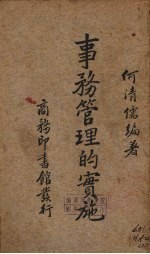 何清儒編著
事務管理的實施
商務印書館發行